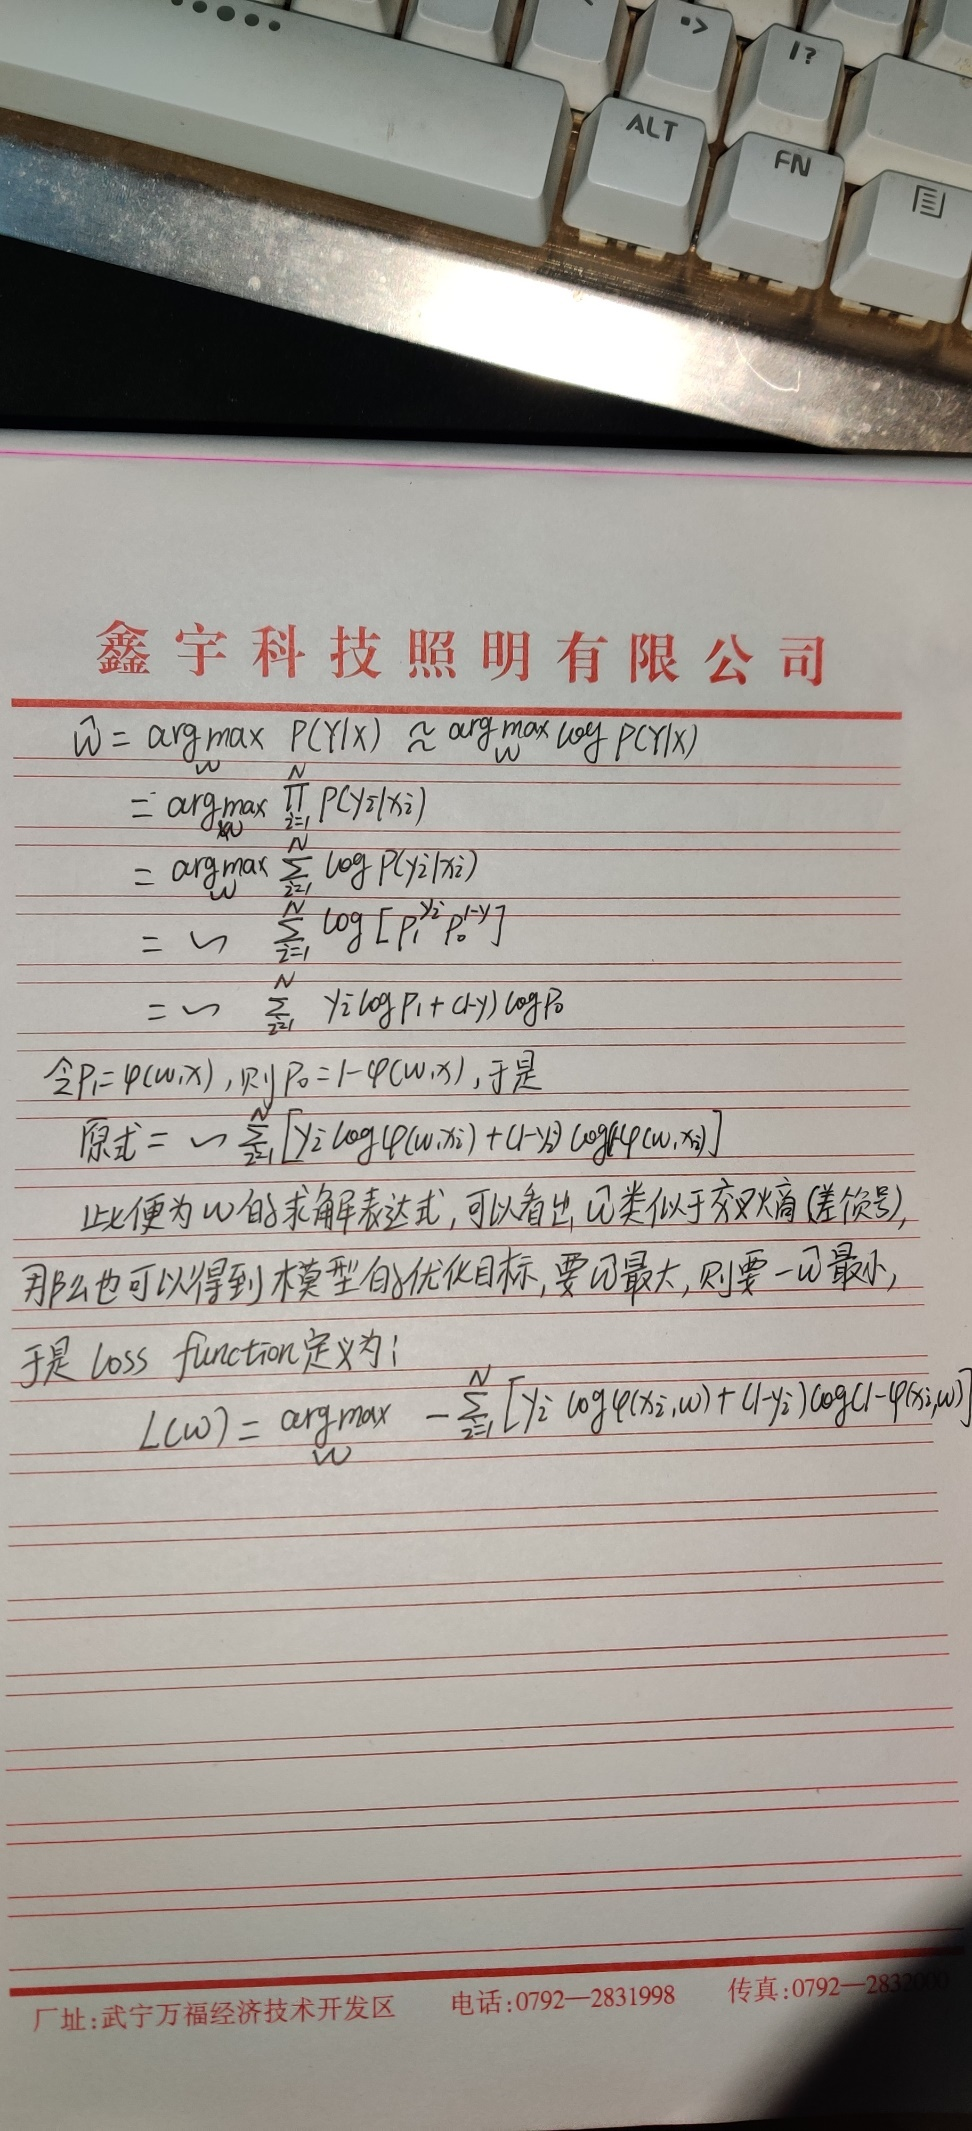 ·>
|?
ALT
FN
鑫宇科技照明有限公司
ŵ = argmax_w P(Y|X) ≈ argmax_w log P(Y|X)
= argmax_w ∏_{i=1}^{N} P(yi|xi)
= argmax_w ∑_{i=1}^{N} log P(yi|xi)
= ~ ∑_{i=1}^{N} log [P₁^{yi} P₀^{1-y}]
= ~ ∑_{i=1}^{N} yi log P₁ + (1-y) log P₀
令P₁=φ(w,x),则P₀=1-φ(w,x),于是
原式= ~ ∑_{i=1}^{N} [yi log φ(w,xi) + (1-yi) log(1-φ(w,xi)]
此便为w的求解表达式,可以看出,ŵ类似于交叉熵(差负号),
那么也可以得到模型的优化目标,要ŵ最大,则要-ŵ最小,
于是 loss function定义为:
L(w) = argmax_w -∑_{i=1}^{N} [yi log φ(xi,w) + (1-yi) log(1-φ(xi,w)]
厂址:武宁万福经济技术开发区 电话:0792—2831998 传真:0792—2832000